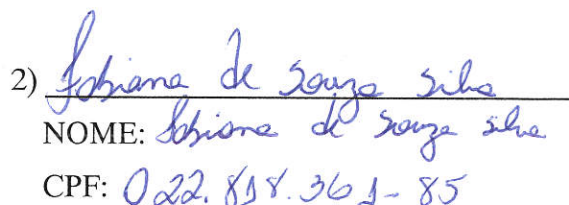 2) Fabiana de Souza Silva
NOME: Fabiana de Souza silva
CPF: 022.818.361-85